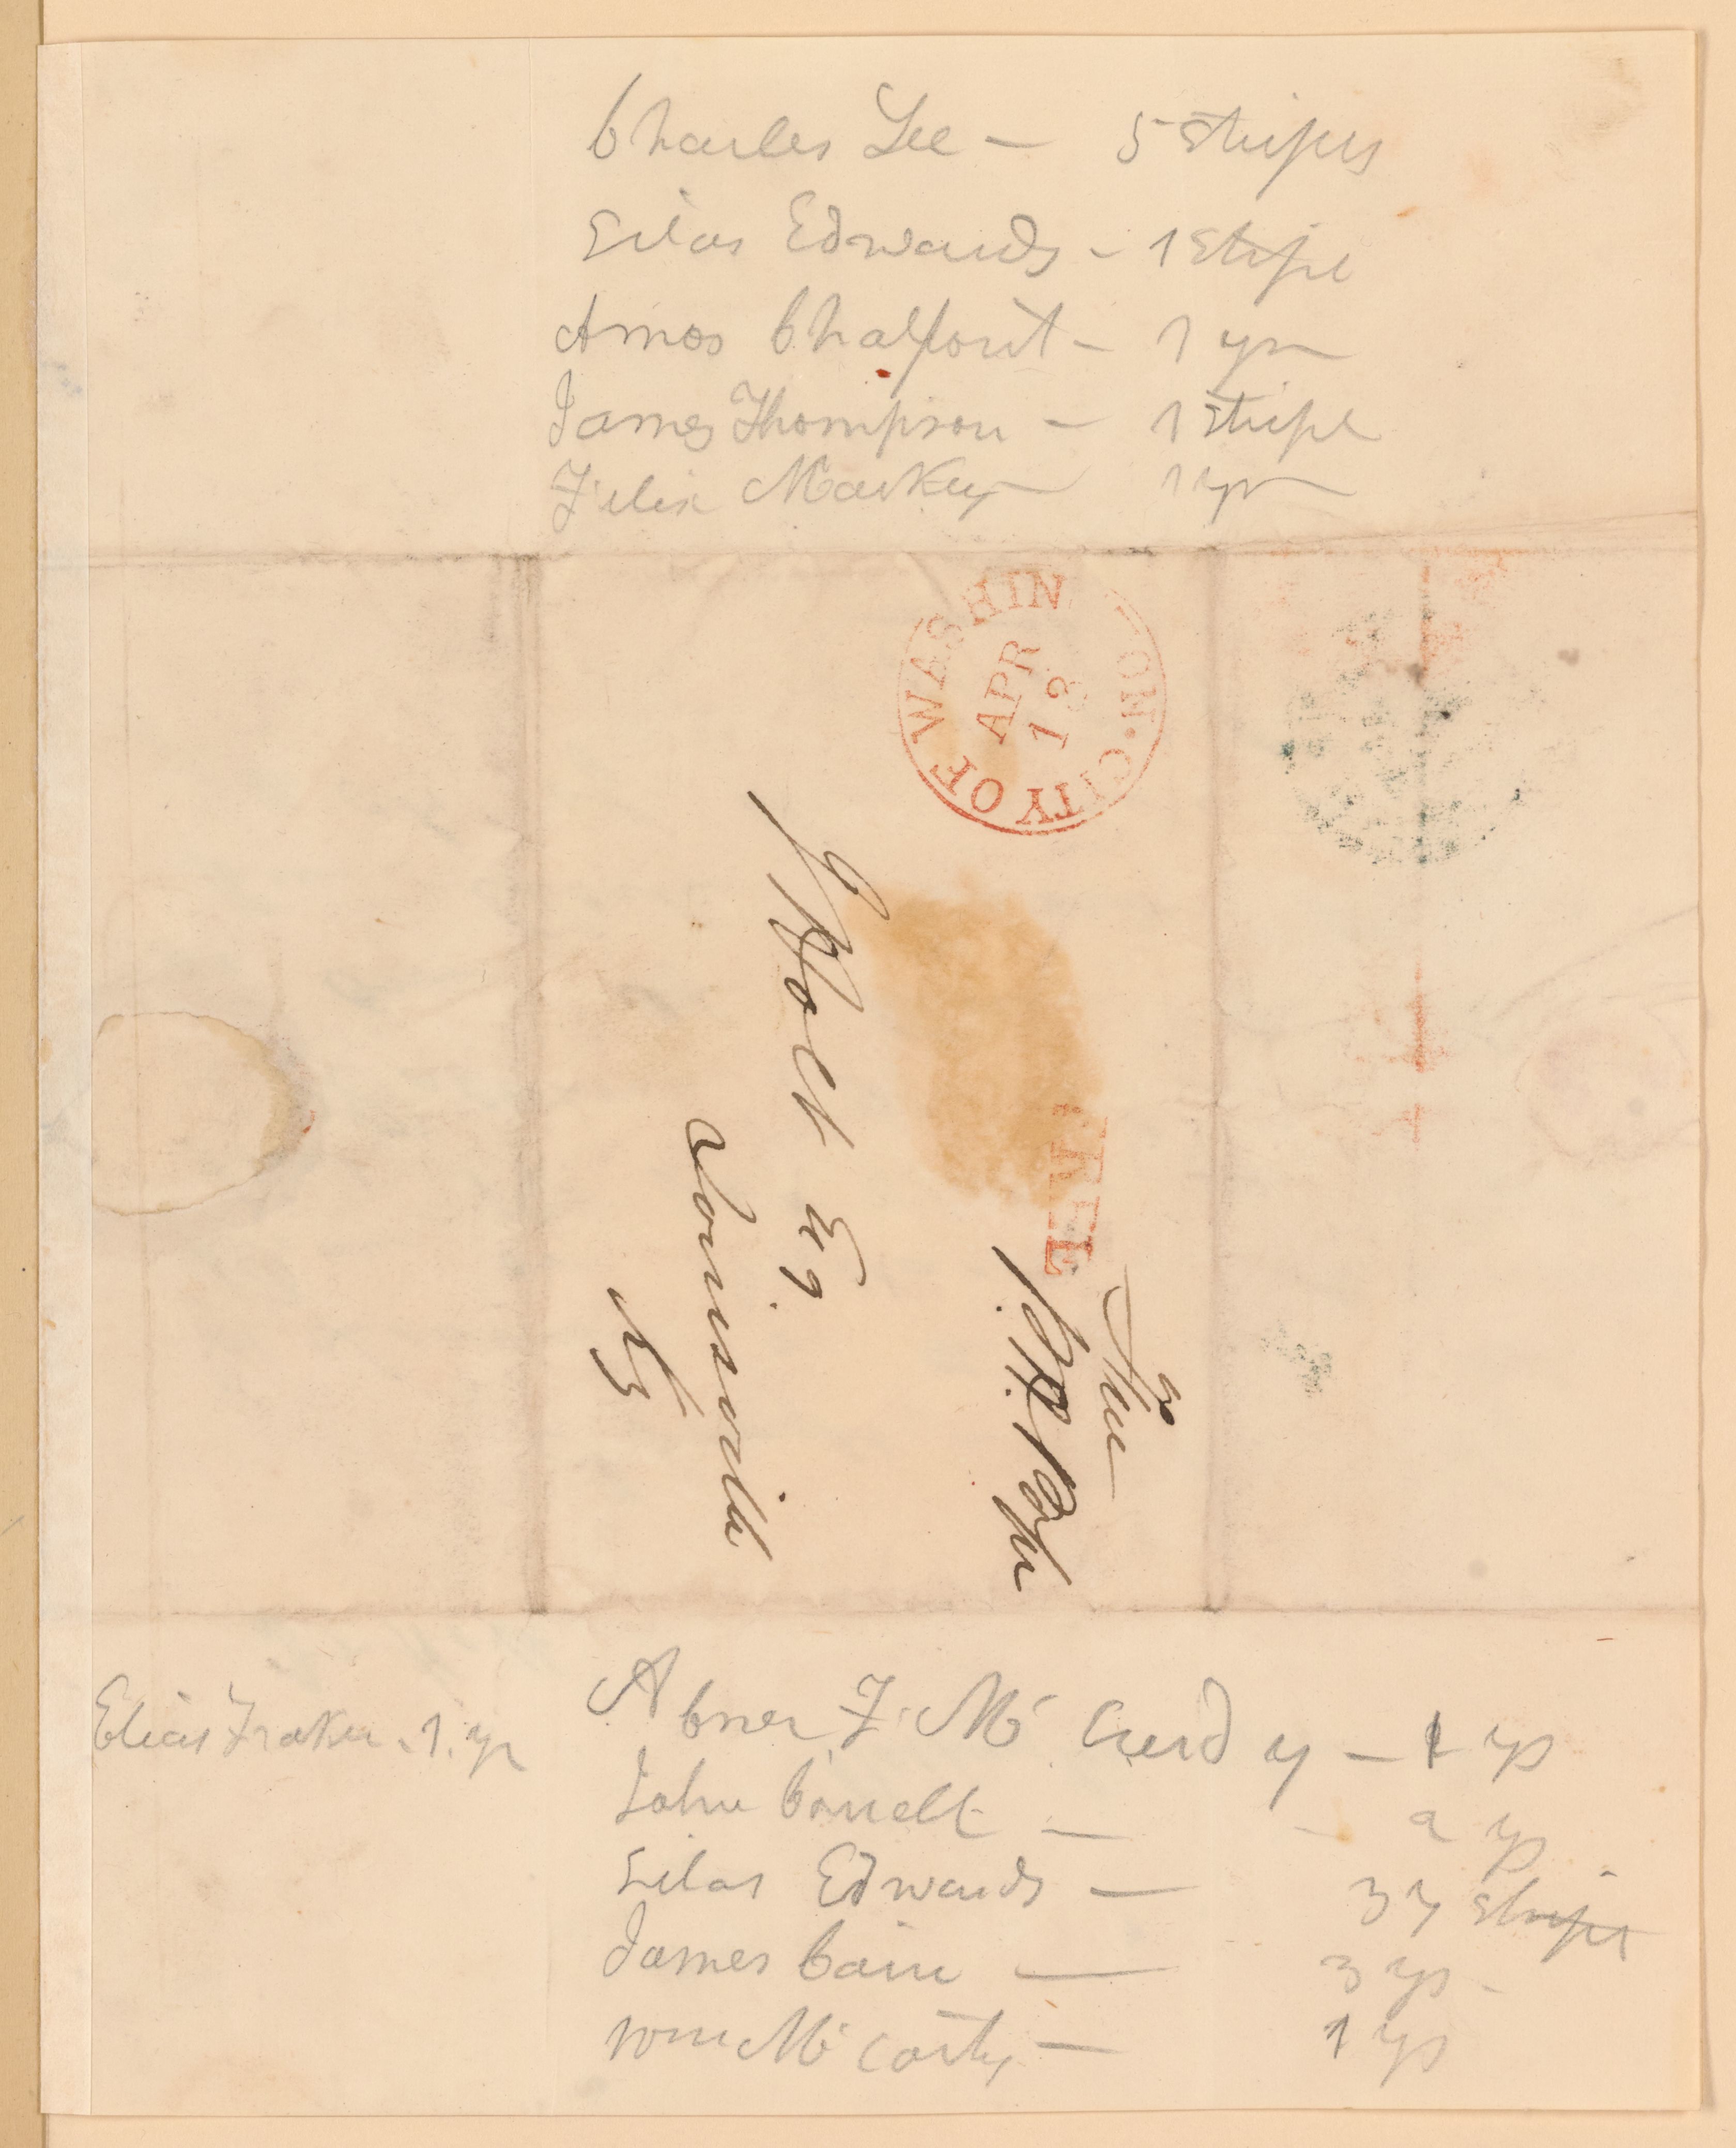 Charles Lee — 5 stripes
Silas Edwards - 1 Stripe
Amos Chalfout - 1 yr
James Thompson - 1 stripe
Felix Markey - 1 yr
CITY OF WASHIN TON
APR
13
FREE
Free
J Holt Esq.
Louisville
Ky
Elias Fraker. 1. yr
Abner F. Mc Curdy - 1 yr
John — 2 yr
Silas Edwards — 3 y stripe
James Cain — 3 yr -
Wm Mc Carty — 1 yr